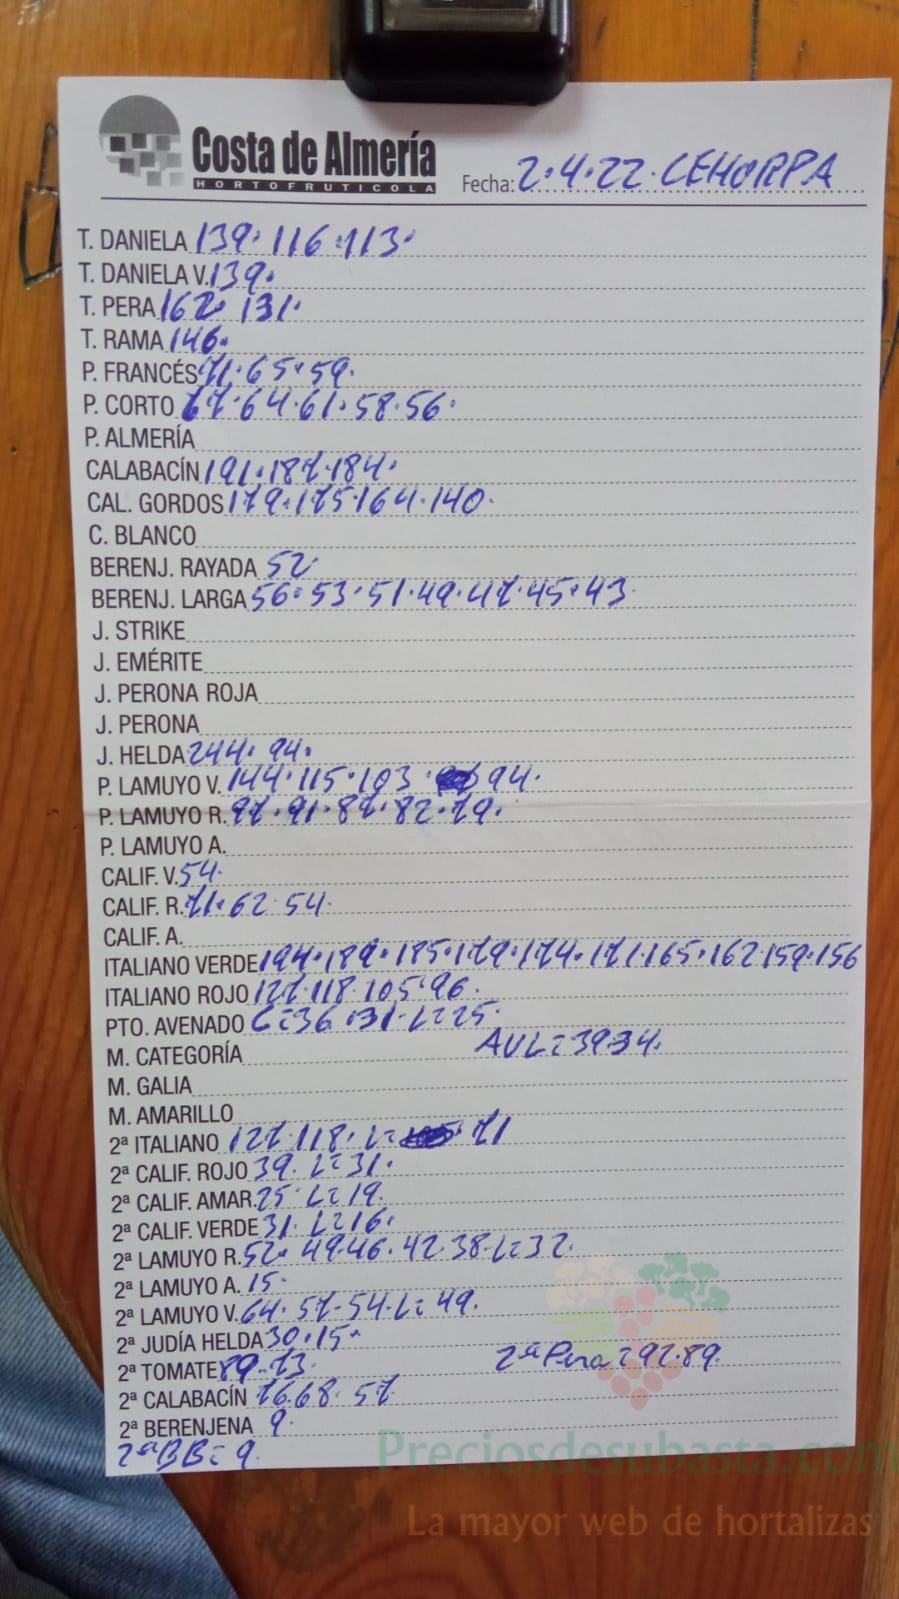 Costa de Almería
HORTOFRUTICOLA
Fecha: 2.4.22. CEHORPA
T. DANIELA 139. 116. 113.
T. DANIELA V. 139.
T. PERA 162. 131.
T. RAMA 146.
P. FRANCÉS 71. 65. 59.
P. CORTO 67. 64. 61. 58. 56.
P. ALMERÍA
CALABACÍN 191. 187. 184.
CAL. GORDOS 179. 175. 164. 140.
C. BLANCO
BERENJ. RAYADA 52
BERENJ. LARGA 56. 53. 51. 49. 47. 45. 43
J. STRIKE
J. EMÉRITE
J. PERONA ROJA
J. PERONA
J. HELDA 244. 94.
P. LAMUYO V. 144. 115. 103. 94.
P. LAMUYO R. 97. 91. 87. 82. 79.
P. LAMUYO A.
CALIF. V. 54.
CALIF. R. 71. 62 54.
CALIF. A.
ITALIANO VERDE 194. 189. 185. 179. 174. 171. 165. 162 159. 156
ITALIANO ROJO 127. 118. 105. 96.
PTO. AVENADO C=36. 31. L=25.
M. CATEGORÍA AVL=39 34.
M. GALIA
M. AMARILLO
2ª ITALIANO 127. 118. L= 71
2ª CALIF. ROJO 39. L=31.
2ª CALIF. AMAR. 25. L=19.
2ª CALIF. VERDE 31. L=16.
2ª LAMUYO R. 52. 49. 46. 42. 38. L=32.
2ª LAMUYO A. 15.
2ª LAMUYO V. 64. 57. 54. L=49.
2ª JUDÍA HELDA 30. 15.
2ª TOMATE 89. 73. 2ª Pera 292. 89.
2ª CALABACÍN 76 68. 57
2ª BERENJENA 9.
2ª BB= 9.
Preciosdesubasta.com
La mayor web de hortalizas